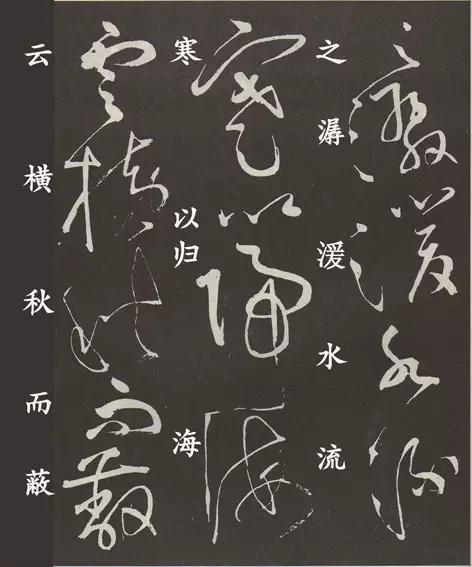 之潺湲水流
寒以归海
云横秋而蔽